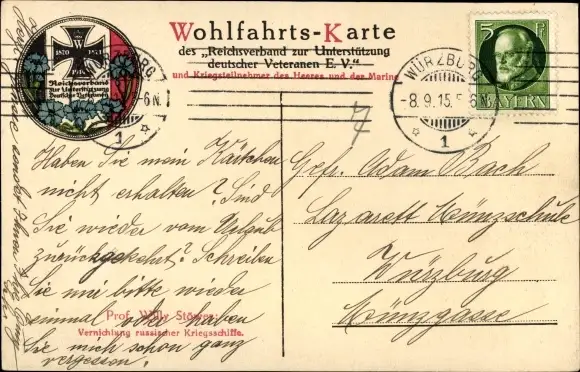 Wohlfahrts-Karte
des „Reichsverband zur Unterstützung
deutscher Veteranen E. V.“
und Kriegsteilnehmer des Heeres und der Marine
W
1870 1871
1914
Reichsverband
zur Unterstützung
Deutscher Veteranen
WÜRZBURG
-8.9.15. 5-6N.
1
5 Pf
BAYERN
7
Haben Sie mein Kärtchen
nicht erhalten? Sind
Sie wieder vom Urlaub
zurückgekehrt? Schreiben
Sie mir bitte wieder
einmal oder haben
Sie mich schon ganz
vergessen.
Prof. Willy Stöwer:
Vernichtung russischer Kriegsschiffe.
Gefr. Adam Bach
Lazarett Münzschule
Würzburg
Münzgasse
sendet Ihnen